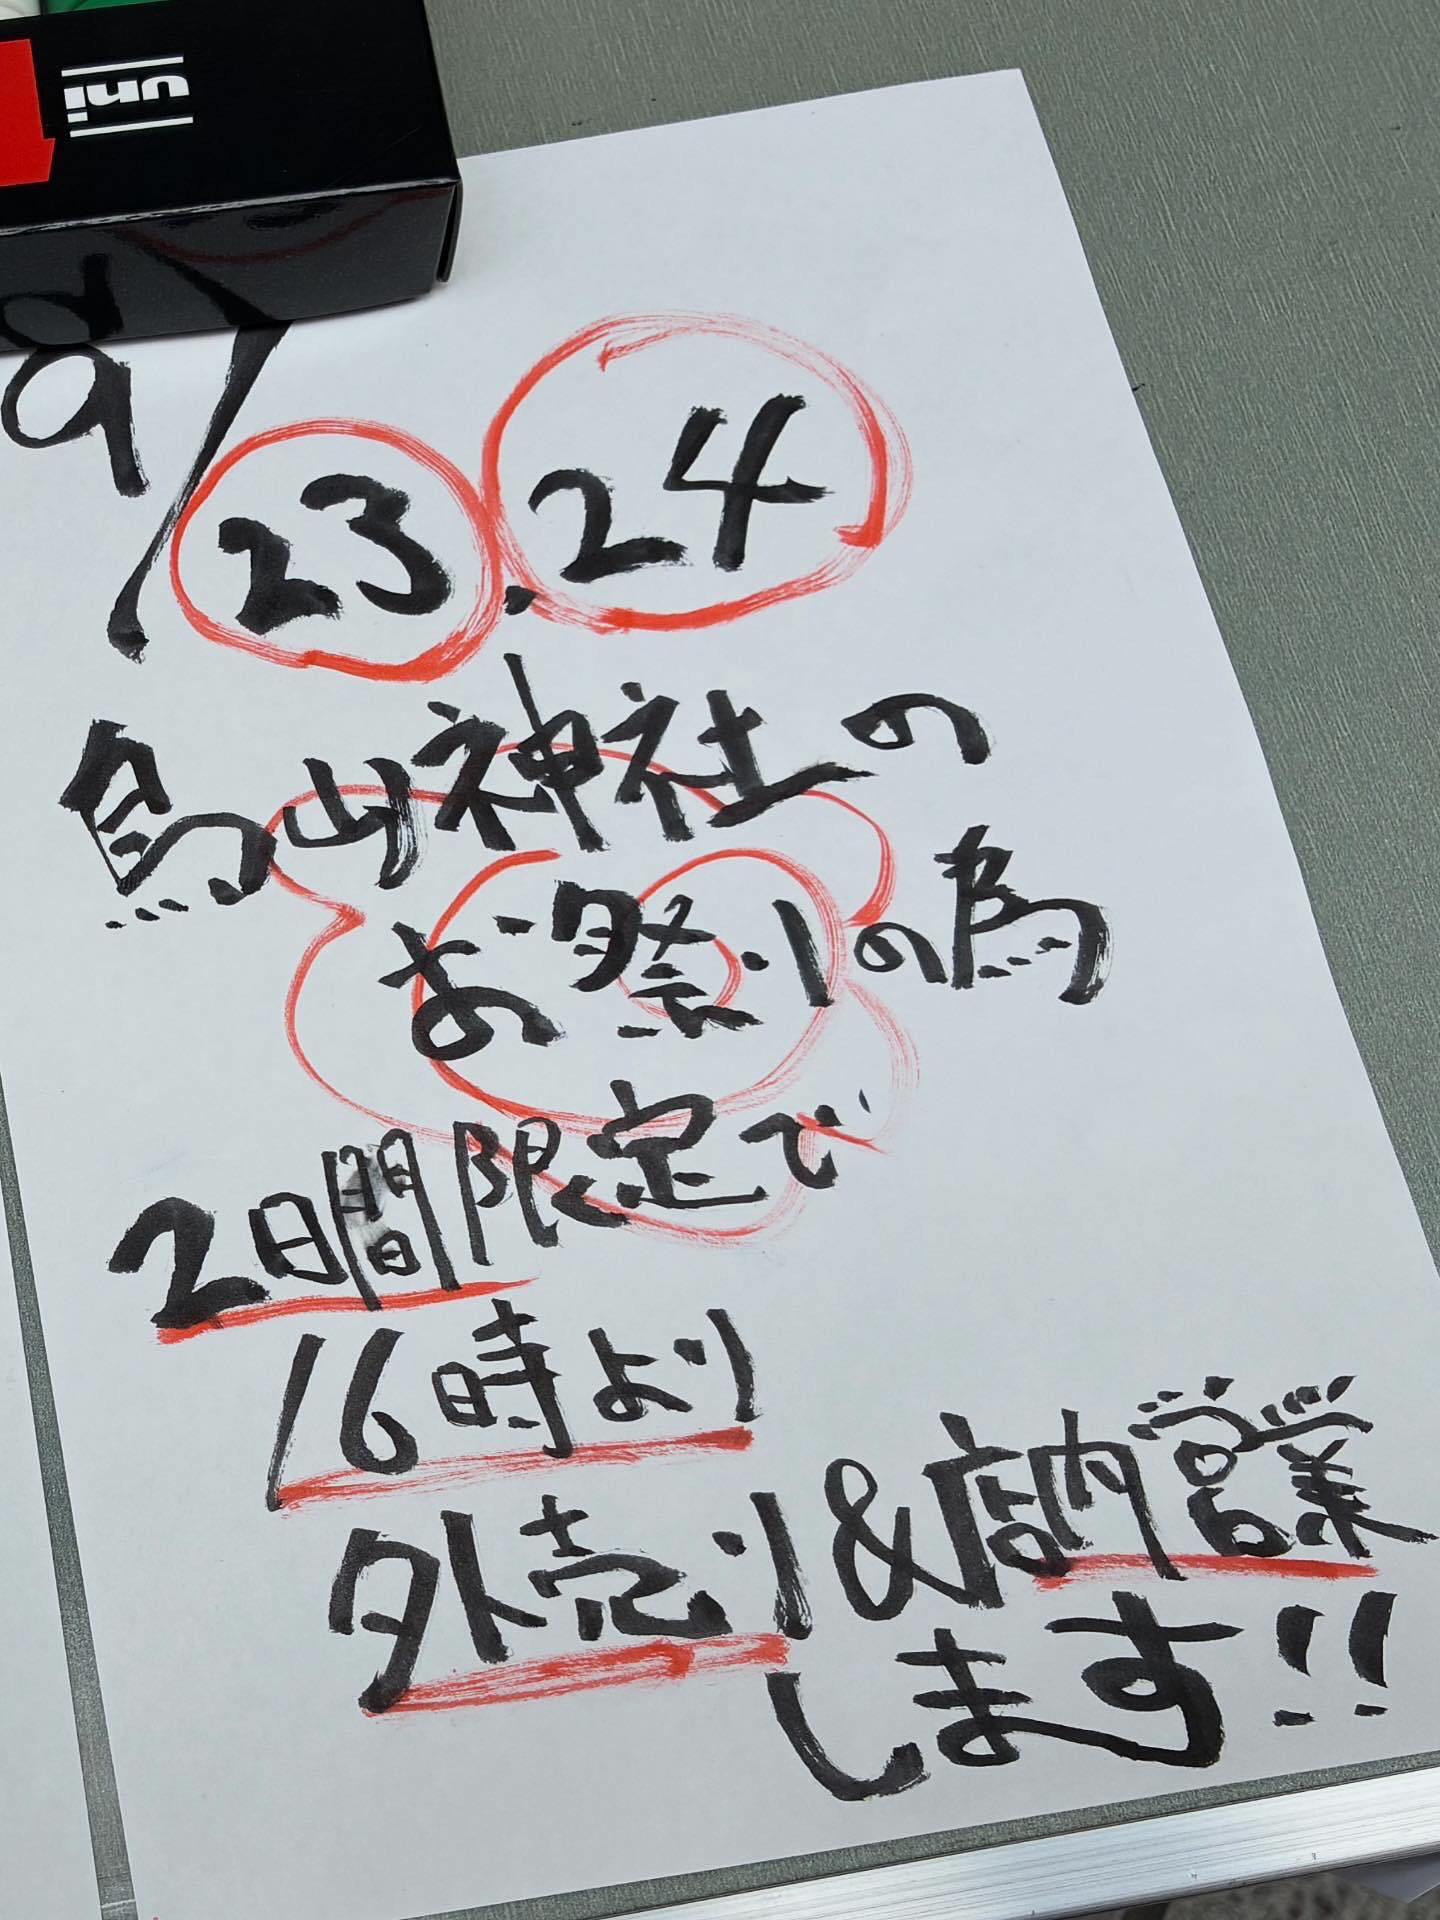 uni
9/23.24
烏山神社の
お祭りの為
2日間限定で
16時より
外売り&店内営業
します!!